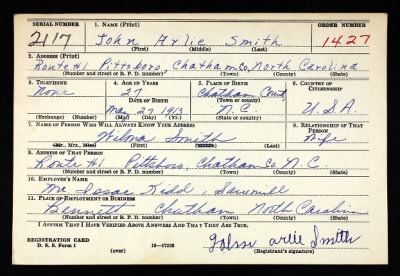 SERIAL NUMBER 1. NAME (Print) ORDER NUMBER
2117 John Arlie Smith 1427
(First) (Middle) (Last)
2. ADDRESS (Print)
Route #1 Pittsboro, Chatham Co, North Carolina
(Number and street or R. F. D. number) (Town) (County) (State)
3. TELEPHONE 4. AGE IN YEARS 5. PLACE OF BIRTH 6. COUNTRY OF CITIZENSHIP
None 27 Chatham
DATE OF BIRTH (Town or county)
May 27 1913 N.C. U.S.A
(Exchange) (Number) (Mo.) (Day) (Yr.) (State or country)
7. NAME OF PERSON WHO WILL ALWAYS KNOW YOUR ADDRESS 8. RELATIONSHIP OF THAT PERSON
Wilma Smith Wife
(Mr., Mrs., Miss) (First) (Middle) (Last)
9. ADDRESS OF THAT PERSON
Route #1 Pittsboro, Chatham Co. N.C.
(Number and street or R. F. D. number) (Town) (County) (State)
10. EMPLOYER'S NAME
Mr Issac Kidd, Sawmill
11. PLACE OF EMPLOYMENT OR BUSINESS
Bennett Chatham North Carolina
(Number and street or R. F. D. number) (Town) (County) (State)
I AFFIRM THAT I HAVE VERIFIED ABOVE ANSWERS AND THAT THEY ARE TRUE.
REGISTRATION CARD John arlie Smith
D. S. S. Form 1 (over) (Registrant's signature)